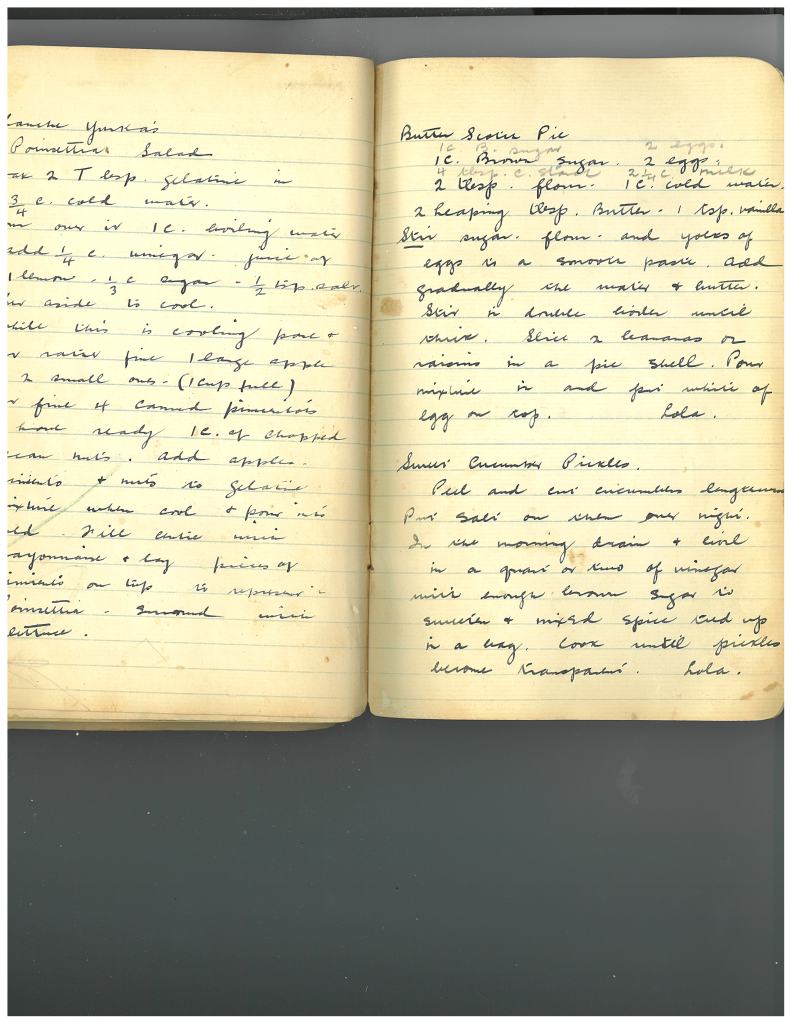 lanche Yurka's
Poinsettia Salad
ak 2 Tbsp. gelatine in
3/4 c. cold water.
ur over it 1 c. boiling water
add 1/4 c. vinegar - juice of
1 lemon - 1/3 c sugar - 1/2 tsp. salt.
aside to cool.
while this is cooling pare +
rather fine 1 large apple
2 small ones - (1 cup full)
fine 4 canned pimentos
have ready 1 c. of chopped
ecan nuts. Add apples.
imiento + nuts to gelatine
ixture when cool + pour into
ld. Fill centre with
ayonnaise + lay pieces of
imiento on top to represent
Poinsettia - Surround with
lettuce.
Butter Scotch Pie
1c B. sugar 2 eggs.
1c. Brown sugar. 2 eggs.
4 tbsp. c. starch 2 1/4 c. milk
2 tbsp. flour. 1c. cold water.
2 heaping tbsp. Butter - 1 tsp. vanilla
Stir sugar - flour - and yolks of
eggs to a smooth paste. Add
gradually the water + butter.
Stir in double boiler until
thick. Slice 2 bananas or
raisins in a pie shell. Pour
mixture in and put white of
egg on top. Lola.
Sweet Cucumber Pickles.
Peel and cut cucumbers lengthwise
Put salt on them over night.
In the morning drain + boil
in a quart or two of vinegar
with enough brown sugar to
sweeten + mixed spice tied up
in a bag. Cook until pickles
become transparent. Lola.